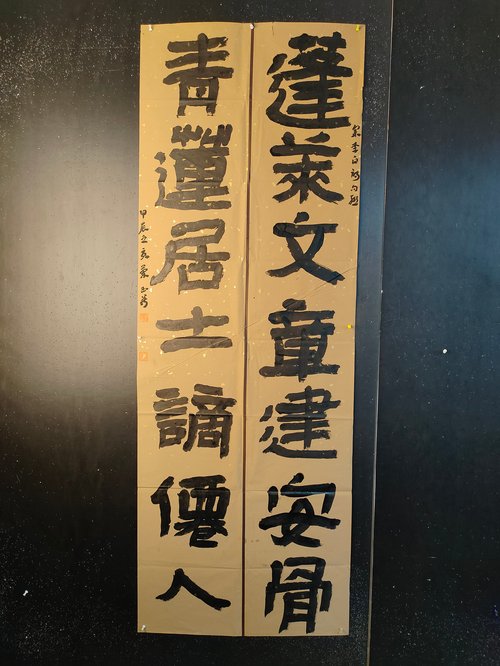 蓬萊文章建安骨
集李白詩句
青蓮居士謫僊人
甲辰之